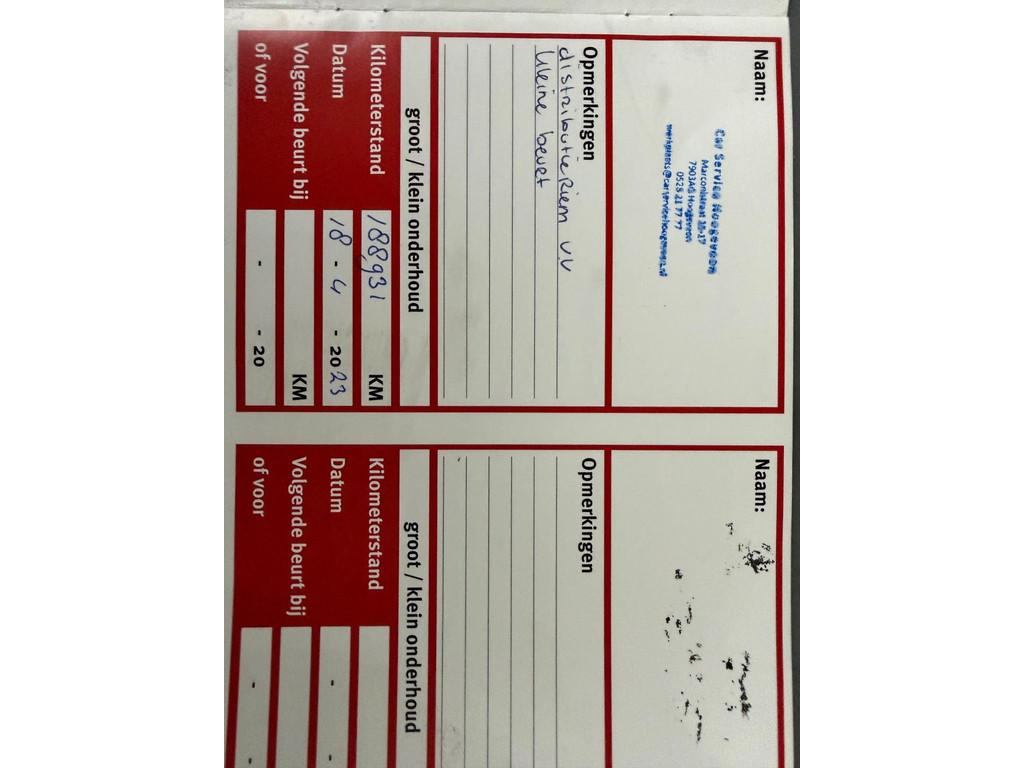 Naam:
Car Service Hoogeveen
Marconistraat 15-17
7903AG Hoogeveen
0528 21 77 77
werkplaats@carservicehoogeveen.nl
Opmerkingen
distributieriem V.V
kleine beurt
groot / klein onderhoud
Kilometerstand 188.931 KM
Datum 18 - 4 - 2023
Volgende beurt bij KM
of voor - - 20
Naam:
Opmerkingen
groot / klein onderhoud
Kilometerstand
Datum -
Volgende beurt bij
of voor -